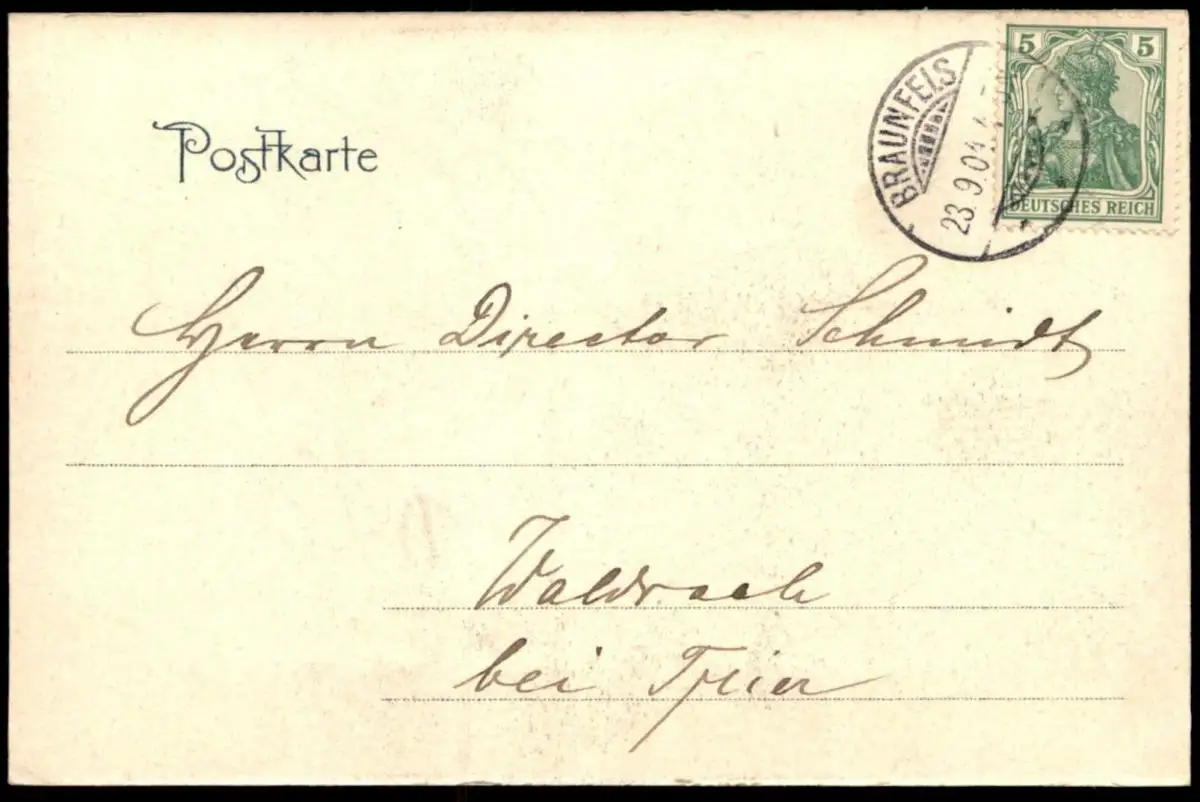 Postkarte
BRAUNFELS
23.9.04.
5 5
DEUTSCHES REICH
Herrn Director Schmidt
Waldrach
bei Trier